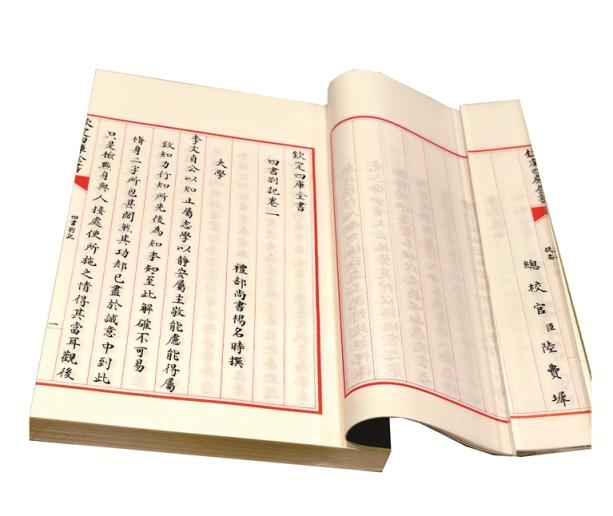 欽定四庫全書
提要
總校官臣陸費墀
欽定四庫全書
四書劄記卷一
禮部尚書楊名時撰
大學
李文貞公以知止屬志學以靜安屬主敬能慮能得屬
致知力行知所先後為知本知至此解確不可易
脩身二字所包甚闊然其功却已盡於誠意中到此
只是檢點身與人接處使所施之情得其當耳觀後
欽定四庫全書
四書劄記
一